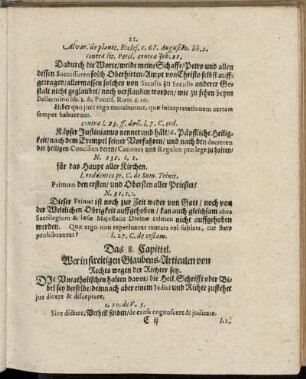 21.
Alvar. de planct. Eccles. c. 68. Augustin. lib. 2.
contra lit. Petil. contra Job. 21.
Dadurch die Worte / weide meine Schaffe / Petro und allen
dessen Successoren solch Oberhirten-Ampt von Christo selbst auff-
getragen / allermassen solches von Seculis zu Seculis anderer Ge-
stalt nicht geglaubet / noch verstanden worden / wie zu sehen beym
Bellarmino lib. 2. de Pontif. Rom. c. 10.
Unde quo jure ergo mutabimus, quæ interpretationem certam
semper habuerunt.
contra l. 23. ff. de ll. l. 7. C. eod.
Käyser Justinianus nennet und hält / 2. Päpstliche Heilig-
keit / nach dem Exempel seiner Vorfahren / und nach den decreten
der heiligen Concilien deren / Canones und Regulen pro lege zu halten /
N. 131. c. 1.
für das Haupt aller Kirchen.
l. reddentes pr. C. de Sum. Trinit.
Primum den ersten / und Obersten aller Priester /
N. 131. c. 2.
Dieser Primat ist noch zur Zeit weder von Gott / noch von
der Weltlichen Obrigkeit auffgehoben / kan auch gleichsam sine
Sacrilegio & læsæ Majestatis Divinæ crimine nicht auffgehoben
werden. Quæ ergo non reperiuntur mutata vel sublata, cur stare
prohibeantur?
l. 27. C. de testam.
Das 8. Capittel.
Wer in streitigen Glaubens-Articulen von
Rechts wegen der Richter sey.
DIe Uncatholischen halten davor / die Heil. Schrifft oder Bi-
bel sey derselbe / demnach aber einem Judici und Richte zustehet
jus dicere & disceptare,
c. 10. de V. S.
Sive dicere, de causa cognoscere & judicare.
C ij
l. 2.